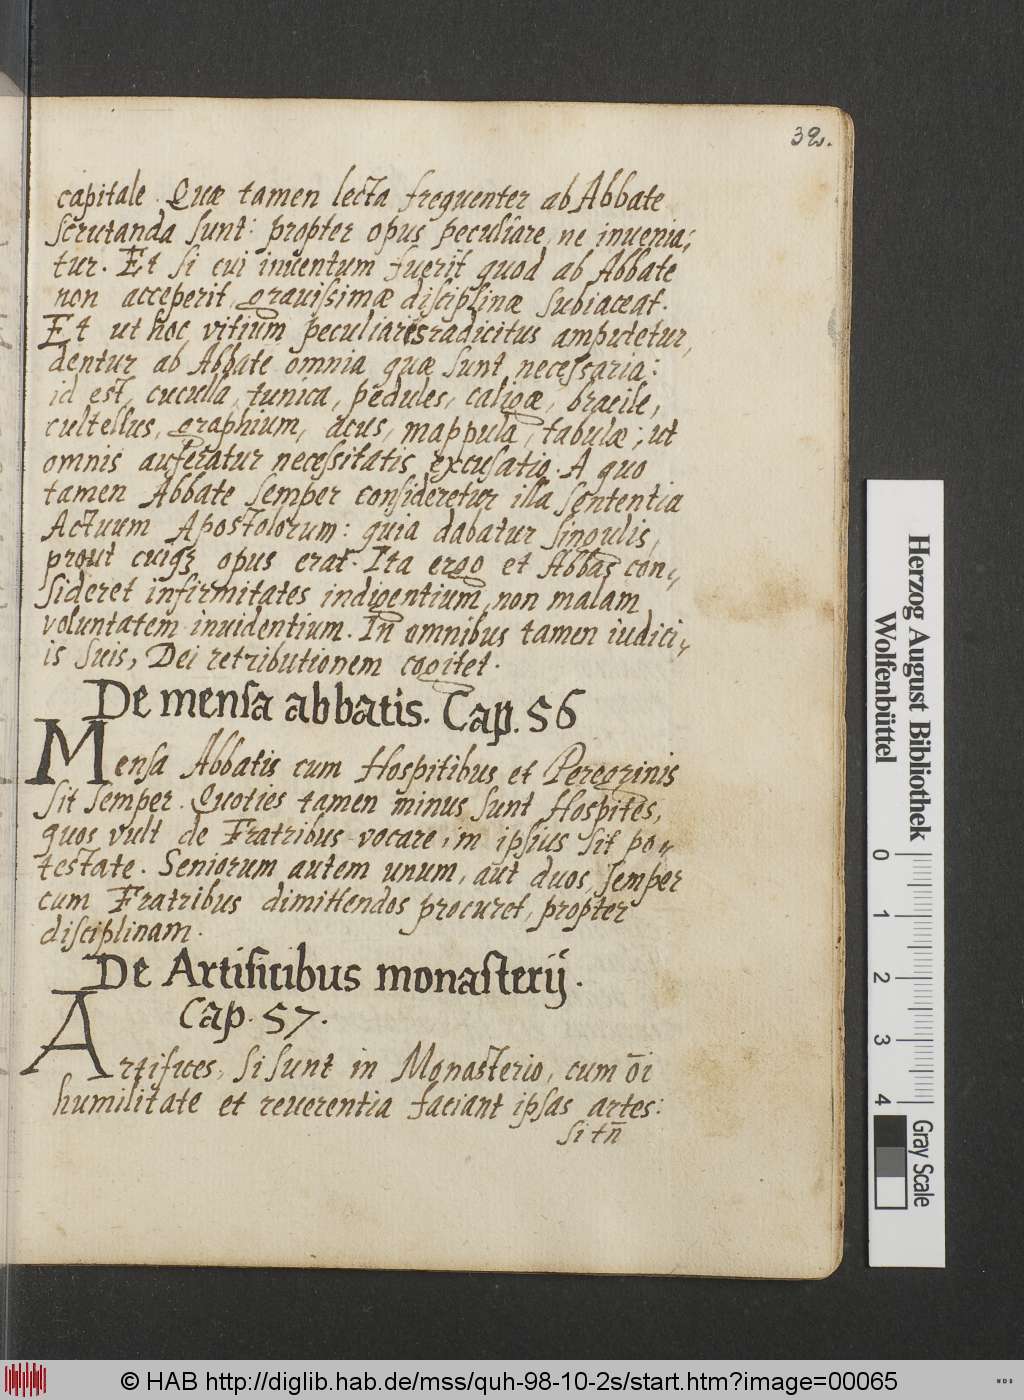 32.
capitale. Quæ tamen lecta frequenter ab Abbate
scrutanda sunt: propter opus peculiare, ne invenia;
tur. Et si cui inventum fuerit quod ab Abbate
non acceperit, grauissimæ disciplinæ subiaceat.
Et ut hoc vitium peculiaris radicitus amputetur,
dentur ab Abbate omnia quæ sunt necessaria:
id est, cuculla, tunica, pedules, caligæ, bracile,
cultellus, graphium, acus, mappula, tabulæ; ut
omnis auferatur necessitatis excusatio. A quo
tamen Abbate semper consideretur illa sententia
Actuum Apostolorum: quia dabatur singulis,
prout cuiqꝫ opus erat. Ita ergo et Abbas con-
sideret infirmitates indigentium, non malam
voluntatem inuidentium. In omnibus tamen iudici-
is suis, Dei retributionem cogitet.
De mensa abbatis. Cap. 56
Mensa Abbatis cum Hospitibus et Peregrinis
sit semper. Quoties tamen minus sunt Hospites,
quos vult de Fratribus vocare, in ipsius sit po-
testate. Seniorum autem unum, aut duos, semper
cum Fratribus dimittendos procuret, propter
disciplinam.
De Artificibus monasterij.
Cap. 57.
Artifices, si sunt in Monasterio, cum oi̅
humilitate et reuerentia faciant ipsas artes:
si tn̅
Herzog August Bibliothek
Wolfenbüttel
0 1 2 3 4
Gray Scale
© HAB http://diglib.hab.de/mss/quh-98-10-2s/start.htm?image=00065